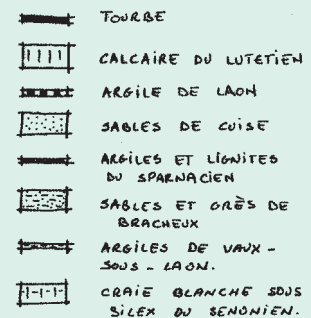 TOURBE
CALCAIRE DU LUTETIEN
ARGILE DE LAON
SABLES DE CUISE
ARGILES ET LIGNITES
DU SPARNACIEN
SABLES ET GRÈS DE
BRACHEUX
ARGILES DE VAUX -
SOUS - LAON.
CRAIE BLANCHE SOUS
SILEX DU SENONIEN.